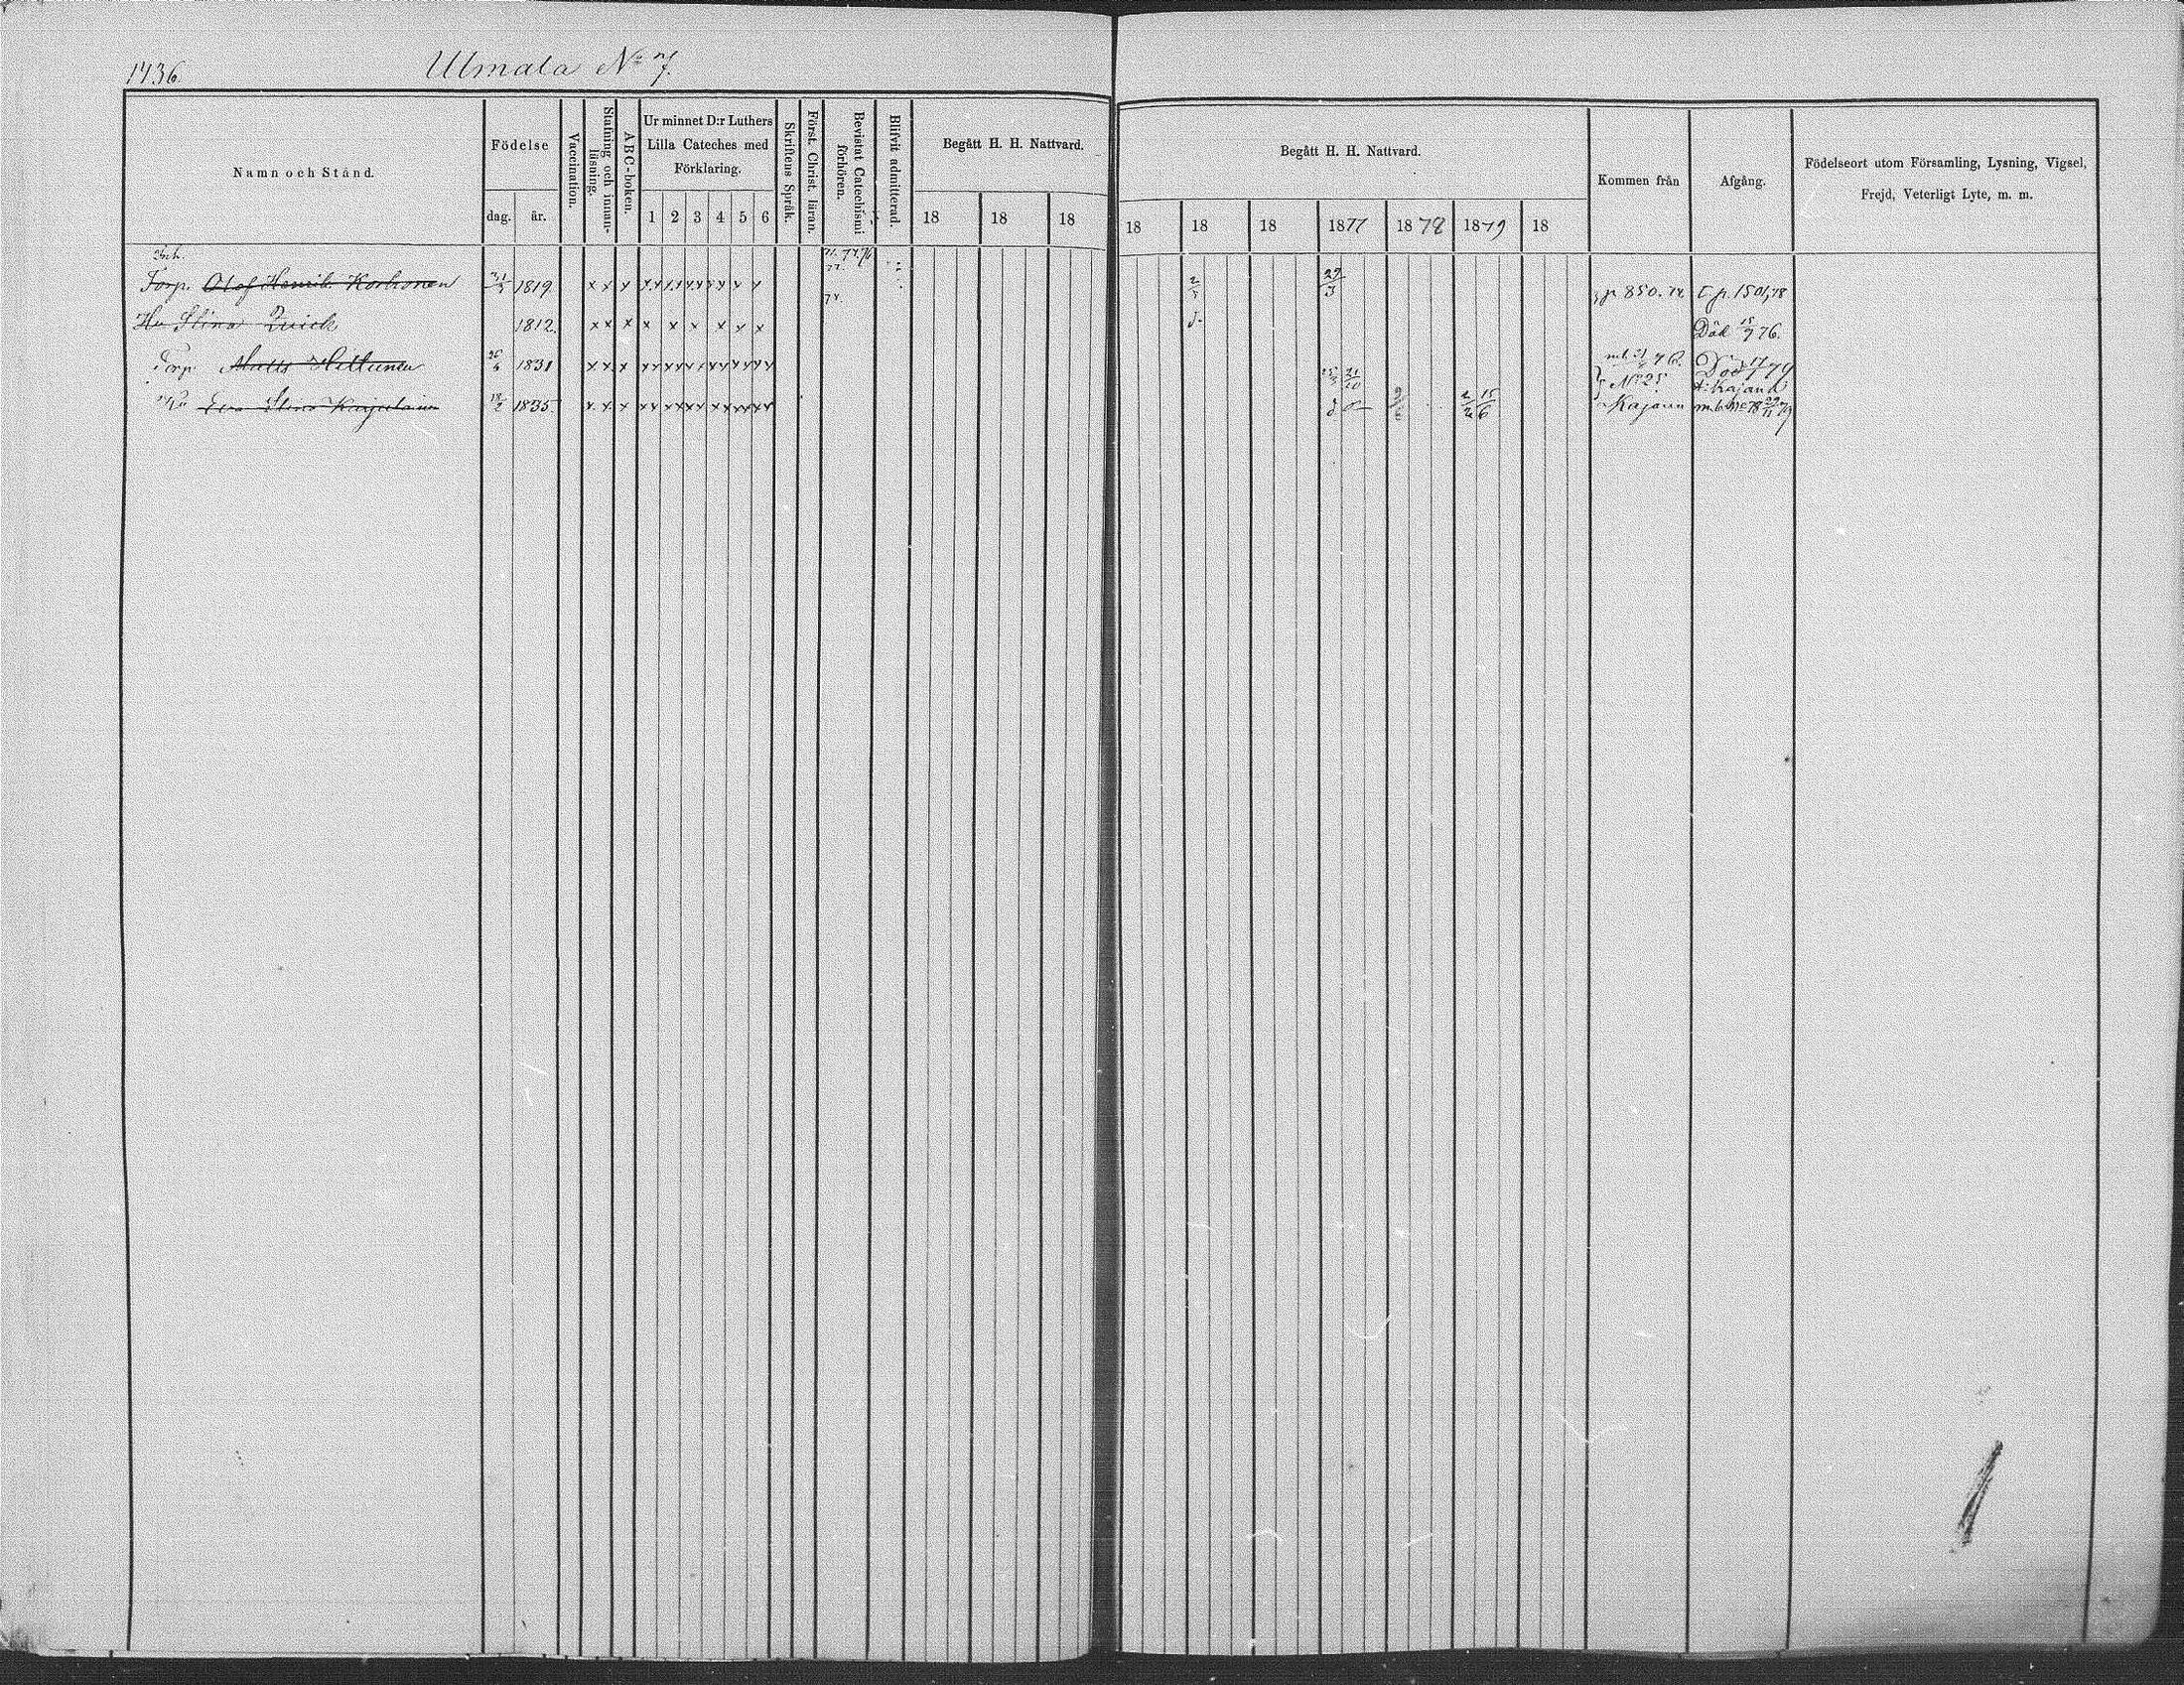 1736.
Ulmala No 7.
Namn och Stånd.
Födelse
dag. år.
Vaccination.
Stafning och innan-läsning.
ABC-boken.
Ur minnet D:r Luthers Lilla Cateches med Förklaring.
1 2 3 4 5 6
Skriftens Språk.
Först. Christ. läran.
Bevistat Catechismi förhören.
Blifvit admitterad.
Begått H. H. Nattvard.
18 18 18
Begått H. H. Nattvard.
18 18 18 1877 1878 1879 18
Kommen från
Afgång.
Födelseort utom Församling, Lysning, Vigsel, Frejd, Veterligt Lyte, m. m.
Inh.
Torp. Olof Henrik Korhonen 1819 x x x x x x x x x x x x x 2/5 29/3 p 850. p. 1501,78
Hu Stina Quick 1812 x x x x x x x x x d. Död 15/7 76.
Torp Matts Hiltunen 1831 x x x x x x x x x x x x x x x 21/10 No 25 Död 79
Hu Eva Stina Karjalainen 18/2 1835 x x x x x x x x x x x x x x x 15/6 Kajana t. Kajana